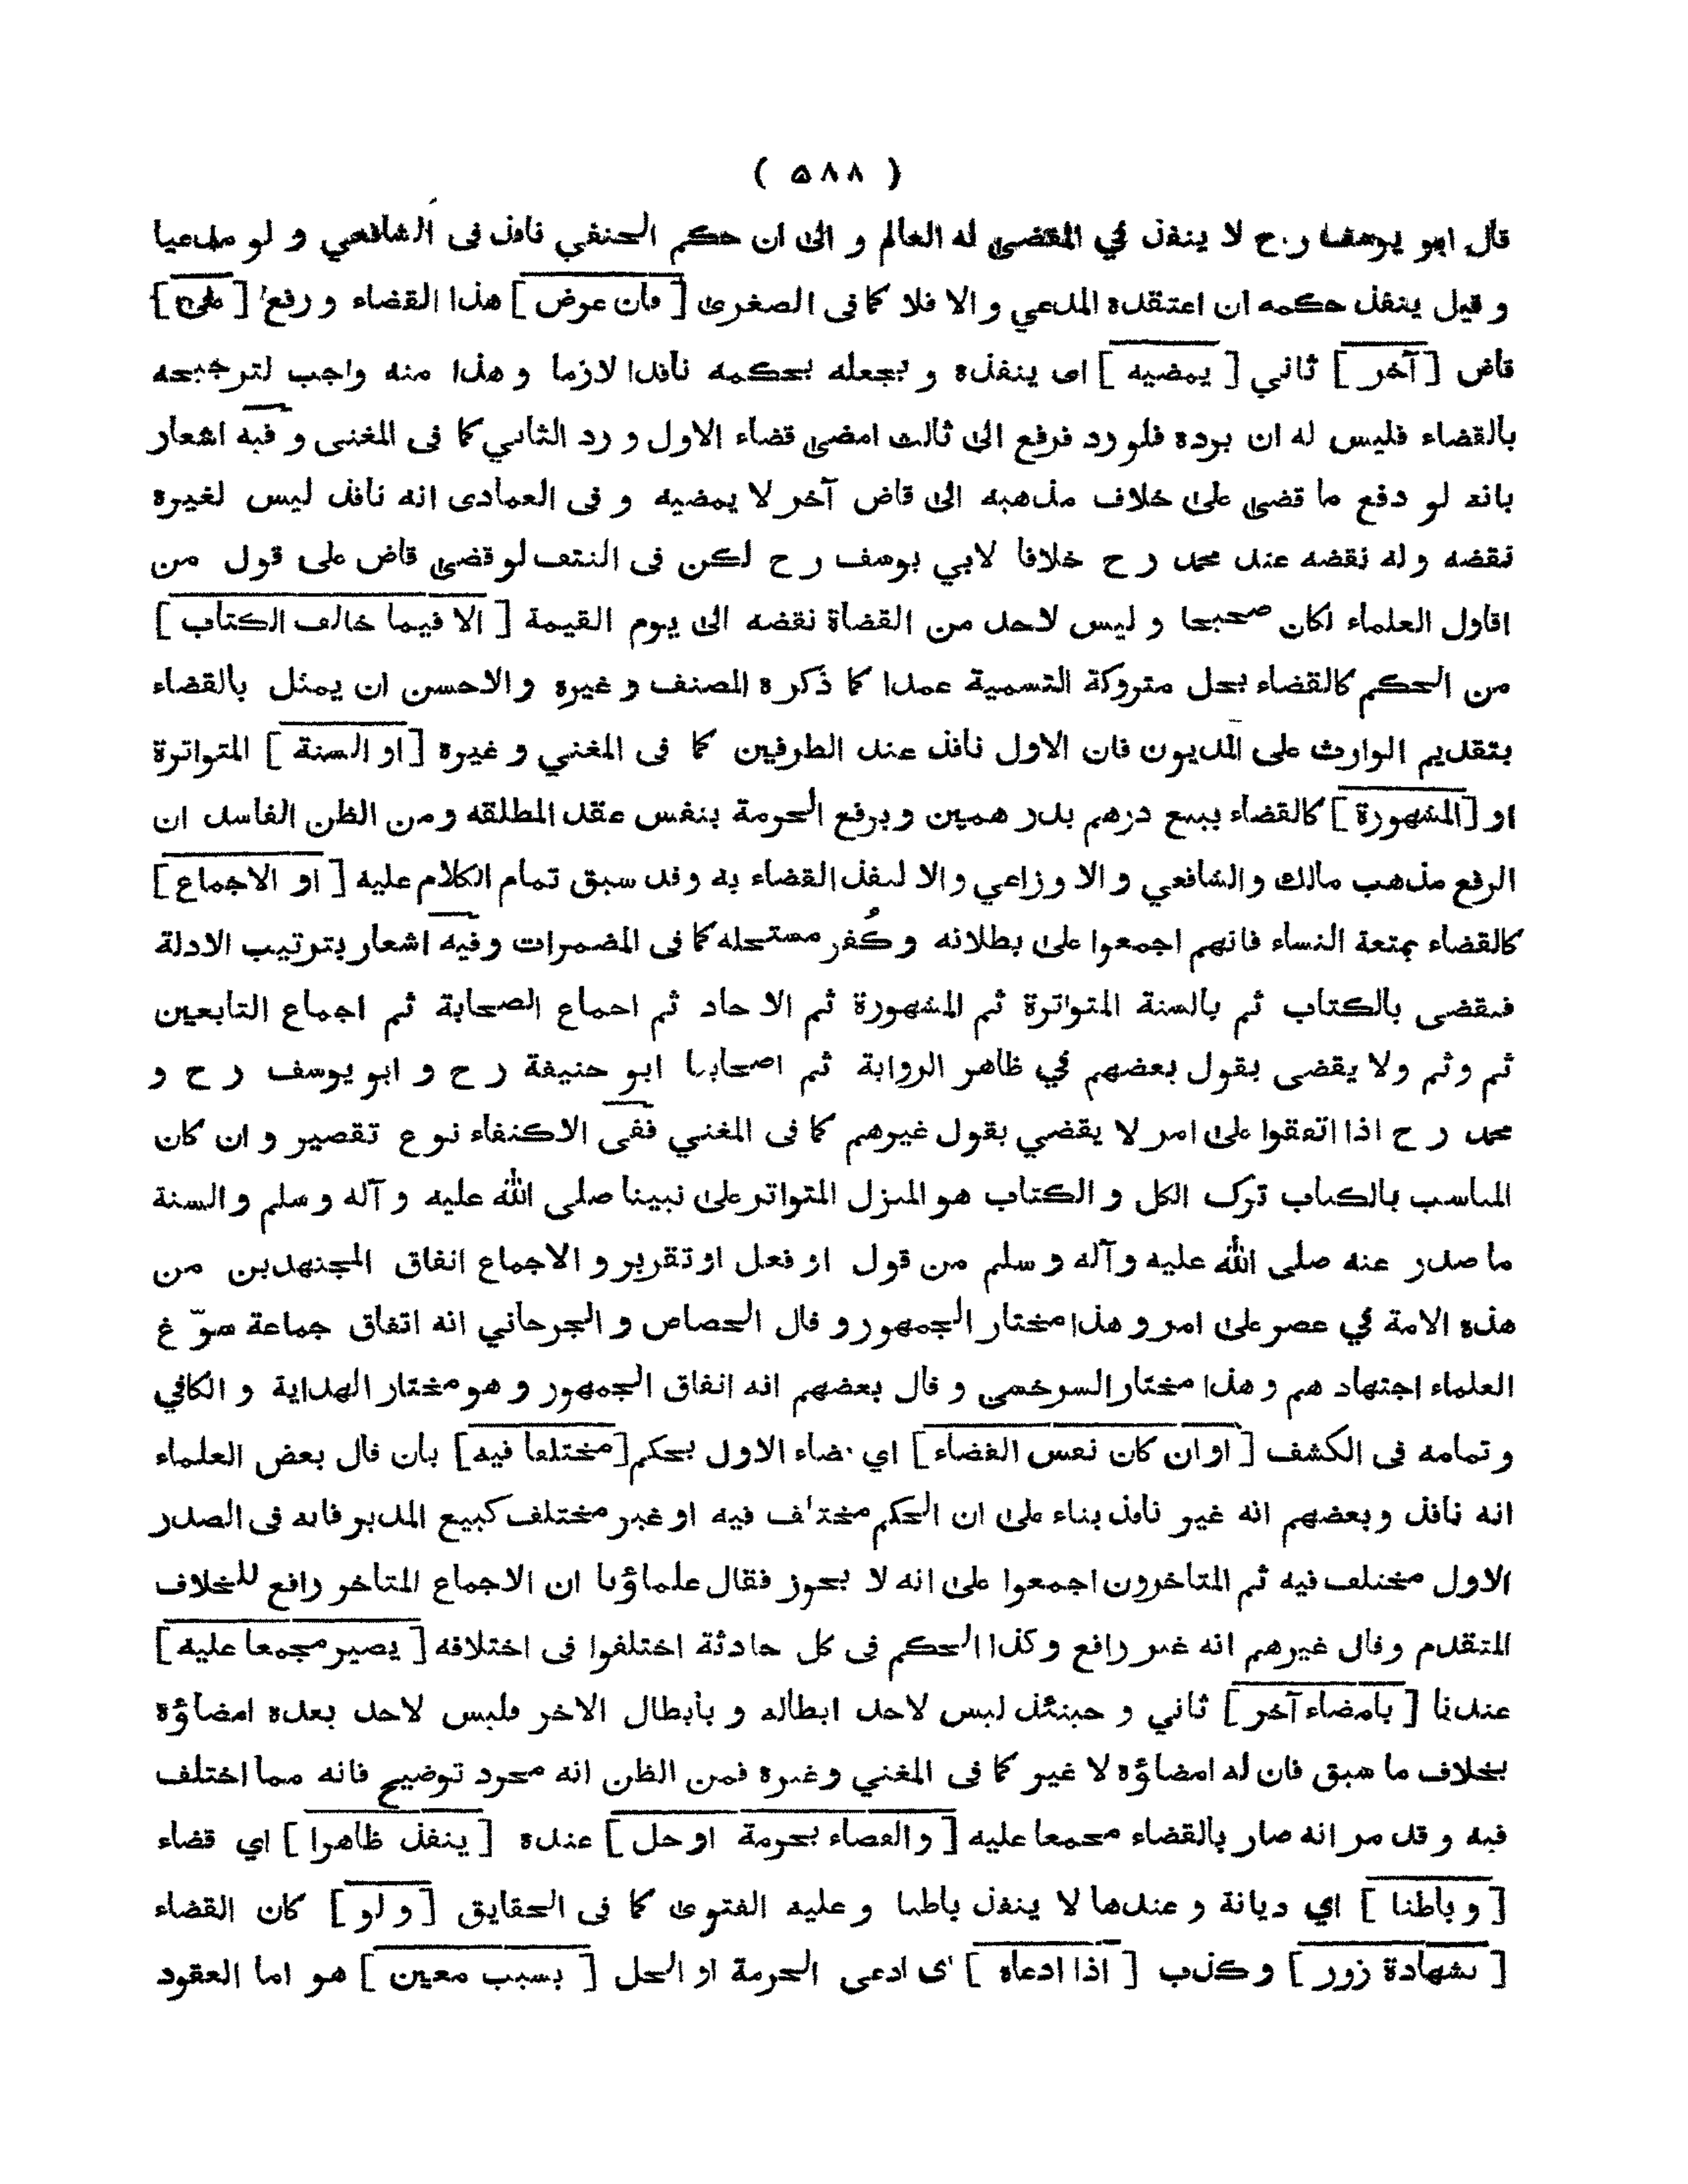 ( ٥٨٨ )
قال ابو يوسف رح لا ينفذ في المقضى له العالم و الى ان حكم الحنفي نافذ فى الشافعي و لو مدعيا
و قيل ينفذ حكمه ان اعتقده المدعي و الا فلا كما فى الصغرى [ فان عرض ] هذا القضاء و رفع [ على ]
قاض [ آخر ] ثاني [ يمضيه ] اى ينفذه و يجعله بحكمه نافذا لازما و هذا منه واجب لترجيحه
بالقضاء فليس له ان يرده فلو رد فرفع الى ثالث امضى قضاء الاول و رد الثاني كما فى المغنى و فيه اشعار
بانه لو دفع ما قضى على خلاف مذهبه الى قاض آخر لا يمضيه و فى العمادى انه نافذ ليس لغيره
نقضه و له نقضه عند محمد رح خلافا لابي يوسف رح لكن فى النتف لو قضى قاض على قول من
اقاول العلماء لكان صحيحا و ليس لاحد من القضاة نقضه الى يوم القيمة [ الا فيما خالف الكتاب ]
من الحكم كالقضاء بحل متروكة التسمية عمدا كما ذكره المصنف و غيره و الاحسن ان يمثل بالقضاء
بتقديم الوارث على المديون فان الاول نافذ عند الطرفين كما فى المغني و غيره [ او السنة ] المتواترة
او [ المشهورة ] كالقضاء ببيع درهم بدرهمين و برفع الحرمة بنفس عقد المطلقه و من الظن الفاسد ان
الرفع مذهب مالك و الشافعي و الاوزاعي و الا لنفذ القضاء به و قد سبق تمام الكلام عليه [ او الاجماع ]
كالقضاء بمتعة النساء فانهم اجمعوا على بطلانه و كُفر مستحله كما فى المضمرات و فيه اشعار بترتيب الادلة
فيقضى بالكتاب ثم بالسنة المتواترة ثم المشهورة ثم الاحاد ثم اجماع الصحابة ثم اجماع التابعين
ثم و ثم ولا يقضى بقول بعضهم في ظاهر الرواية ثم اصحابنا ابو حنيفة رح و ابو يوسف رح و
محمد رح اذا اتفقوا على امر لا يقضي بقول غيرهم كما فى المغني ففى الاكتفاء نوع تقصير و ان كان
المناسب بالكتاب ترك الكل و الكتاب هو المنزل المتواتر على نبينا صلى الله عليه و آله و سلم و السنة
ما صدر عنه صلى الله عليه و آله و سلم من قول او فعل او تقرير و الاجماع اتفاق المجتهدين من
هذه الامة في عصر على امر و هذا مختار الجمهور و قال الجصاص و الجرجاني انه اتفاق جماعة سوّغ
العلماء اجتهادهم و هذا مختار السرخسى و قال بعضهم انه اتفاق الجمهور و هو مختار الهداية و الكافي
و تمامه فى الكشف [ او ان كان نفس القضاء ] اي قضاء الاول بحكم [ مختلفا فيه ] بان قال بعض العلماء
انه نافذ و بعضهم انه غير نافذ بناء على ان الحكم مختلف فيه او غير مختلف كبيع المدبر فانه فى الصدر
الاول مختلف فيه ثم المتاخرون اجمعوا على انه لا يجوز فقال علماؤنا ان الاجماع المتاخر رافع للخلاف
المتقدم و قال غيرهم انه غير رافع و كذا الحكم فى كل حادثة اختلفوا فى اختلافه [ يصير مجمعا عليه ]
عندنا [ بامضاء آخر ] ثاني و حينئذ ليس لاحد ابطاله و بابطال الاخر فليس لاحد بعده امضاؤه
بخلاف ما سبق فان له امضاؤه لا غير كما فى المغني و غيره فمن الظن انه مجرد توضيح فانه مما اختلف
فيه و قد مر انه صار بالقضاء مجمعا عليه [ و القضاء بحرمة او حل ] عنده [ ينفذ ظاهرا ] اي قضاء
[ و باطنا ] اي ديانة و عندهما لا ينفذ باطنا و عليه الفتوى كما فى الحقايق [ و لو ] كان القضاء
[ بشهادة زور ] و كذب [ اذا ادعاه ] اى ادعى الحرمة او الحل [ بسبب معين ] هو اما العقود